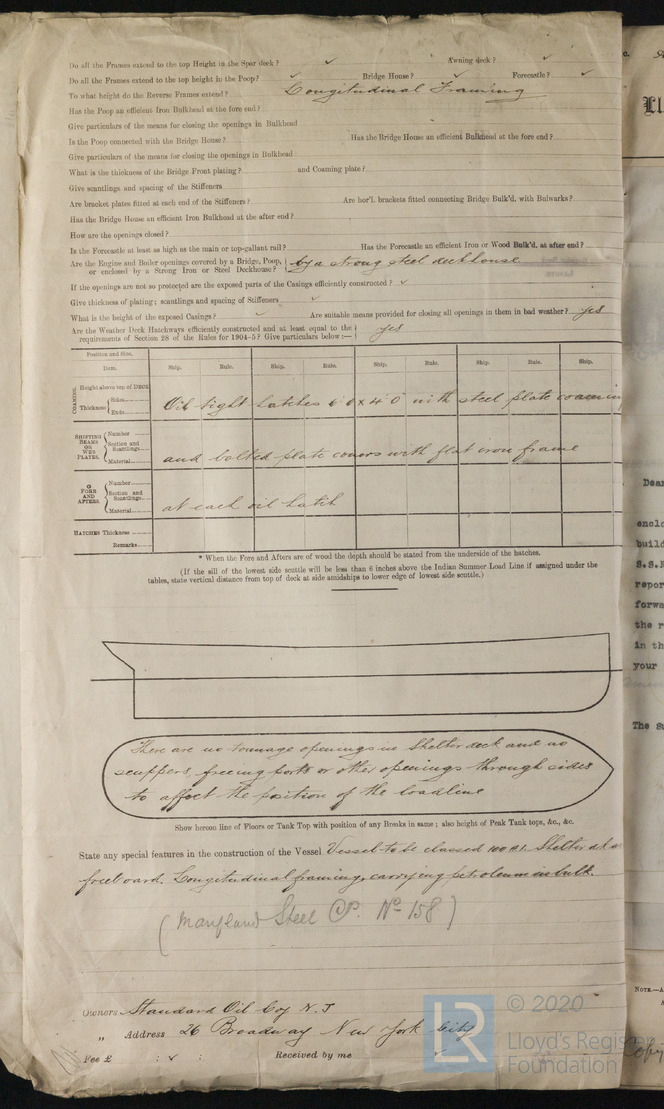 Do all the Frames extend to the top Height in the Spar deck? ✓ Awning deck? ✓
Do all the Frames extend to the top height in the Poop? ✓ Bridge House? ✓ Forecastle? ✓
To what height do the Reverse Frames extend? Longitudinal Framing
Has the Poop an efficient Iron Bulkhead at the fore end?
Give particulars of the means for closing the openings in Bulkhead
Is the Poop connected with the Bridge House? Has the Bridge House an efficient Bulkhead at the fore end?
Give particulars of the means for closing the openings in Bulkhead
What is the thickness of the Bridge Front plating? and Coaming plate?
Give scantlings and spacing of the Stiffeners
Are bracket plates fitted at each end of the Stiffeners? Are hor'l. brackets fitted connecting Bridge Bulk'd, with Bulwarks?
Has the Bridge House an efficient Iron Bulkhead at the after end?
How are the openings closed?
Is the Forecastle at least as high as the main or top-gallant rail? Has the Forecastle an efficient Iron or Wood Bulk'd, at after end?
Are the Engine and Boiler openings covered by a Bridge, Poop, or enclosed by a Strong Iron or Steel Deckhouse? by a strong steel deckhouse
If the openings are not so protected are the exposed parts of the Casings efficiently constructed? ✓
Give thickness of plating; scantlings and spacing of Stiffeners ✓
What is the height of the exposed Casings? ✓ Are suitable means provided for closing all openings in them in bad weather? yes
Are the Weather Deck Hatchways efficiently constructed and at least equal to the
requirements of Section 28 of the Rules for 1904-5? Give particulars below:— yes
Position and Size.
Item. Ship. Rule. Ship. Rule. Ship. Rule. Ship. Rule. Ship.
COAMING. Height above top of DECK
Thickness Sides
Ends
Oil tight hatches 6'0 x 4'0 with steel plate coaming
SHIFTING BEAMS OR WEB PLATES. Number
Section and Scantlings
Material
and bolted plate covers with flat iron frame
FORE AND AFTERS. Number
Section and Scantlings
Material
at each oil hatch
HATCHES Thickness
Remarks
* When the Fore and Afters are of wood the depth should be stated from the underside of the hatches.
(If the sill of the lowest side scuttle will be less than 6 inches above the Indian Summer Load Line if assigned under the
tables, state vertical distance from top of deck at side amidships to lower edge of lowest side scuttle.)
There are no tonnage openings in Shelter deck and no
scuppers, freeing ports or other openings through sides
to affect the position of the loadline
Show hereon line of Floors or Tank Top with position of any Breaks in same; also height of Peak Tank tops, &c., &c.
State any special features in the construction of the Vessel. Vessel to be classed 100A1. Shelter dk
freeboard. Longitudinal framing, carrying petroleum in bulk.
(Maryland Steel Co. No 158)
Owners Standard Oil Coy N.J
" Address 26 Broadway New York City
Fee £ : ✓ : Received by me
© 2020
LR
Lloyd's Register
Foundation
Dear
enclo
build
S.S.
repor
forwa
the r
in th
your
The Su
NOTE.—A
Copy